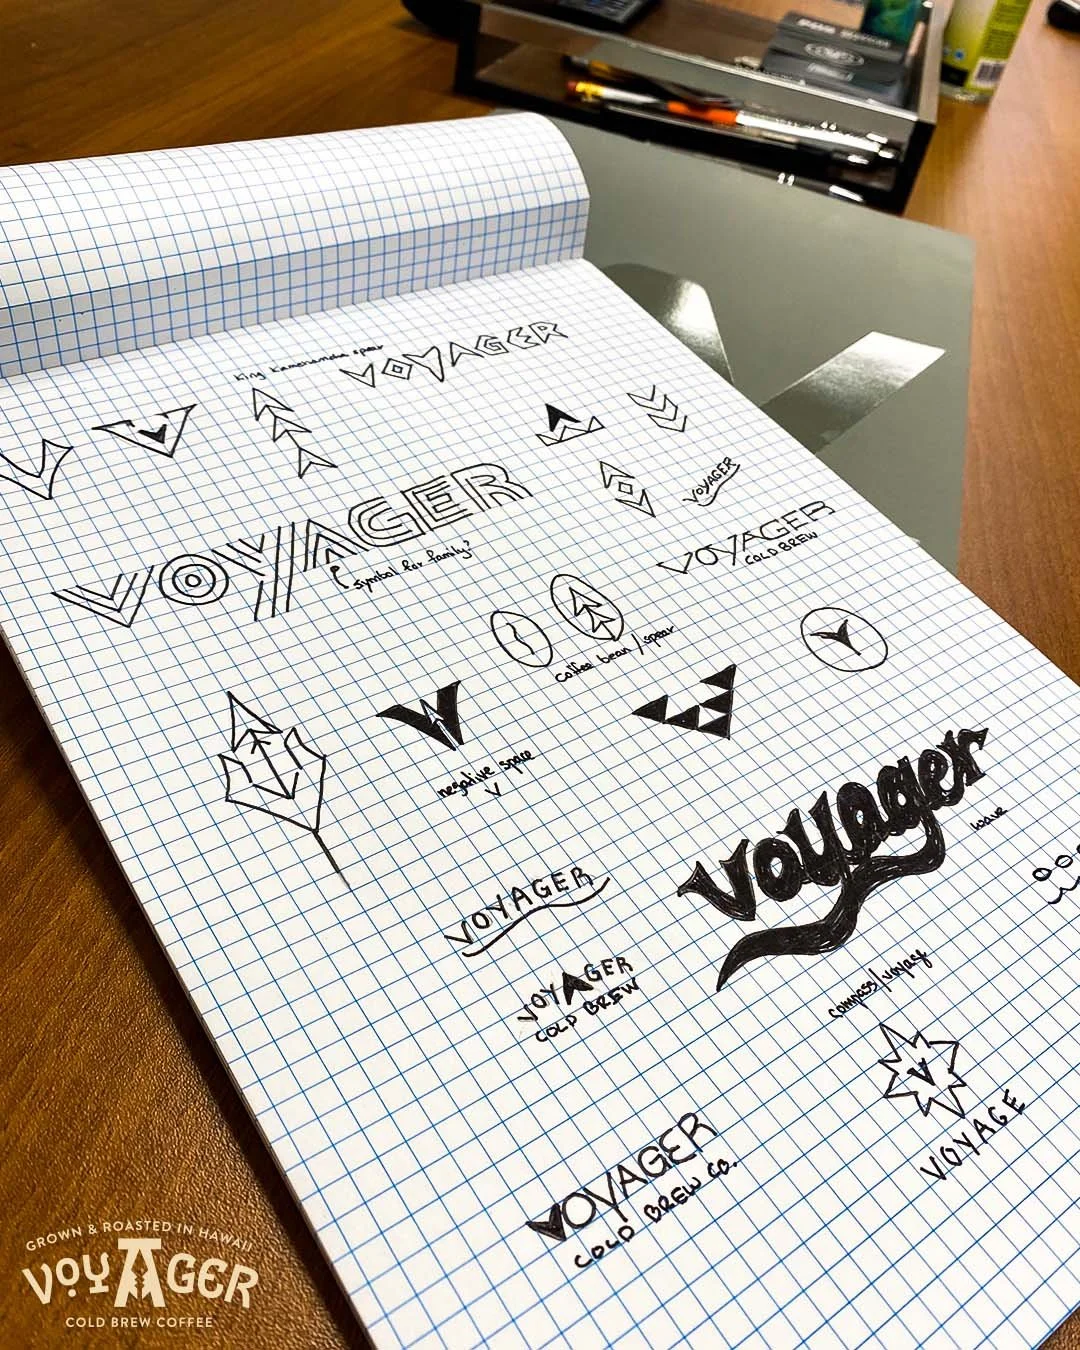 King Kamehameha spear
VOYAGER
VOYAGER
symbol for family?
VOYAGER
VOYAGER
COLD BREW
coffee bean / spear
negative space
V
voyager
wave
VOYAGER
VOYAGER
COLD BREW
compass/voyage
V
VOYAGE
VOYAGER
COLD BREW CO.
GROWN & ROASTED IN HAWAII
VOYAGER
COLD BREW COFFEE